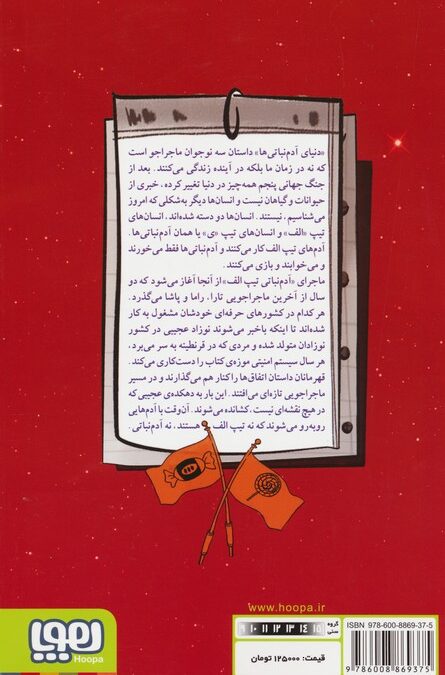 «دنیای آدم‌نباتی‌ها» داستان سه نوجوان ماجراجو است
که نه در زمان ما بلکه در آینده زندگی می‌کنند. بعد از
جنگ جهانی پنجم همه‌چیز در دنیا تغییر کرده، خبری از
حیوانات و گیاهان نیست و انسان‌ها دیگر به‌شکلی که امروز
می‌شناسیم، نیستند. انسان‌ها دو دسته شده‌اند، انسان‌های
تیپ «الف» و انسان‌های تیپ «ی» یا همان آدم‌نباتی‌ها.
آدم‌های تیپ الف کار می‌کنند و آدم‌نباتی‌ها فقط می‌خورند
و می‌خوابند و بازی می‌کنند.
ماجرای «آدم‌نباتی تیپ الف» از آنجا آغاز می‌شود که دو
سال از آخرین ماجراجویی تارا، راما و پاشا می‌گذرد.
هر کدام در کشورهای حرفه‌ای خودشان مشغول به کار
شده‌اند تا اینکه باخبر می‌شوند نوزاد عجیبی در کشور
نوزادان متولد شده و مردی که در قرنطینه به سر می‌برد،
هر سال سیستم امنیتی موزه‌ی کتاب را دست‌کاری می‌کند.
قهرمانان داستان اتفاق‌ها را کنار هم می‌گذارند و در مسیر
ماجراجویی تازه‌ای می‌افتند. این بار به دهکده‌ی عجیبی که
در هیچ نقشه‌ای نیست، کشانده می‌شوند. آن‌وقت با آدم‌هایی
روبه‌رو می‌شوند که نه تیپ الف هستند، نه آدم‌نباتی.
www.hoopa.ir
هوپا
Hoopa
گروه سنی
۹ ۱۰ ۱۱ ۱۲ ۱۳ ۱۴ ۱۵
قیمت: ۱۲۵۰۰۰ تومان
ISBN 978-600-8869-37-5
9 786008 869375